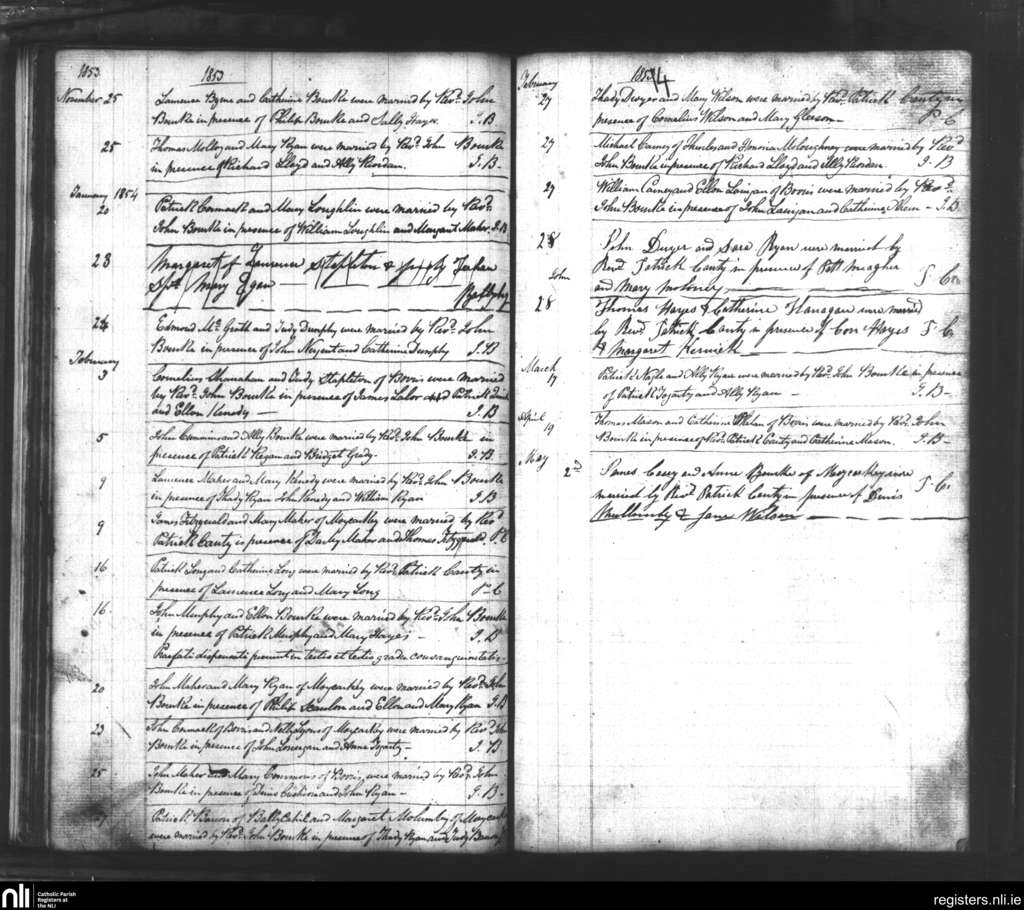 1853
1853
November 25
Laurence Byrne and Catherine Bourke were married by Revd. John
Bourke in presence of Philip Bourke and Sally Hayes. J. B
25
Thomas Molloy and Mary Ryan were married by Revd. John Bourke
in presence of Richard Lloyd and Ally Riordan. J. B.
January 1854
20
Patrick Cormack and Mary Loughlin were married by Revd.
John Bourke in presence of William Loughlin and Margaret Maher. J. B
23
Margaret of Laurence Stapleton &
Mary Egan
24
Edmond Mc. Grath and Judy Dunphy were married by Revd. John
Bourke in presence of John Nugent and Catherine Dunphy J. B
February
3
Cornelius Shanahan and Judy Stapleton of Borris were married
by Revd. John Bourke in presence of James Lalor and Patrick
and Ellen Kenedy — J. B
5
John Cummins and Ally Bourke were married by Revd. John Bourke in
presence of Patrick Regan and Bridget Grady. J. B.
9
Laurence Maher and Mary Kenedy were married by Revd. John Bourke
in presence of Thady Ryan John Kenedy and William Ryan J. B
9
James Fitzgerald and Mary Maher of Moycarkey were married by Revd
Patrick Canty in presence of Darby Maher and Thomas Fitzgerald. P. C
16
Patrick Long and Catherine Long were married by Revd. Patrick Canty in
presence of Laurence Long and Mary Long P — C
16
John Murphy and Ellen Bourke were married by Revd. John Bourke
in presence of Patrick Murphy and Mary Hayes — J. B
Praefati dispensati fuerunt in tertio et tertio gradu consanguinitatis.
20
John Maher and Mary Ryan of Moycarkey were married by Revd. John
Bourke in presence of Philip Scanlon and Ellen and Mary Ryan J. B
23
John Cormack of Borris and Nelly Lyons of Moycarkey were married by Revd. John
Bourke in presence of John Lonergan and Anne Fogarty — J. B
25
John Maher and Mary Commons of Borris were married by Revd. John
Bourke in presence of Denis and John Ryan — J. B.
Patrick of Ballycahil and Margaret Molumby of Moycarkey
were married by Revd. John Bourke in presence of Thady Ryan and Judy
February
1854
27
Thady Dwyer and Mary Wilson were married by Revd. Patrick Canty in
presence of Cornelius Wilson and Mary Gleeson — P. C
27
Michael Carney of Thurles and Honoria Moloughney were married by Revd
John Bourke in presence of Richard Lloyd and Ally Riordan. J. B
27
William Carney and Ellen Lanigan of Borris were married by Revd.
John Bourke in presence of John Lanigan and Catherine — J. B
28
John Dwyer and Sara Ryan were married by
Revd Patrick Canty in presence of Patt Meagher
John
and Mary Molumby — P. C.
28
Thomas Hayes & Catherine Flanagan were married
by Revd. Patrick Canty in presence of Con Hayes P. C
& Margaret Kerwick —
March
17
Patrick Nagle and Ally Ryan were married by Revd. John Bourke in presence
of Patrick Fogarty and Ally Ryan — J. B —
April
19
Thomas Mason and Catherine Phelan of Borris were married by Revd. John
Bourke in presence of Revd. Patrick Canty and Catherine Mason. J. B —
May
2nd
James Casey and Anne Bourke of Moycarkey were
married by Revd. Patrick Canty in presence of Denis P. C.
Mullumby & Jane Watson —
nli
Catholic Parish
Registers at
the NLI
registers.nli.ie